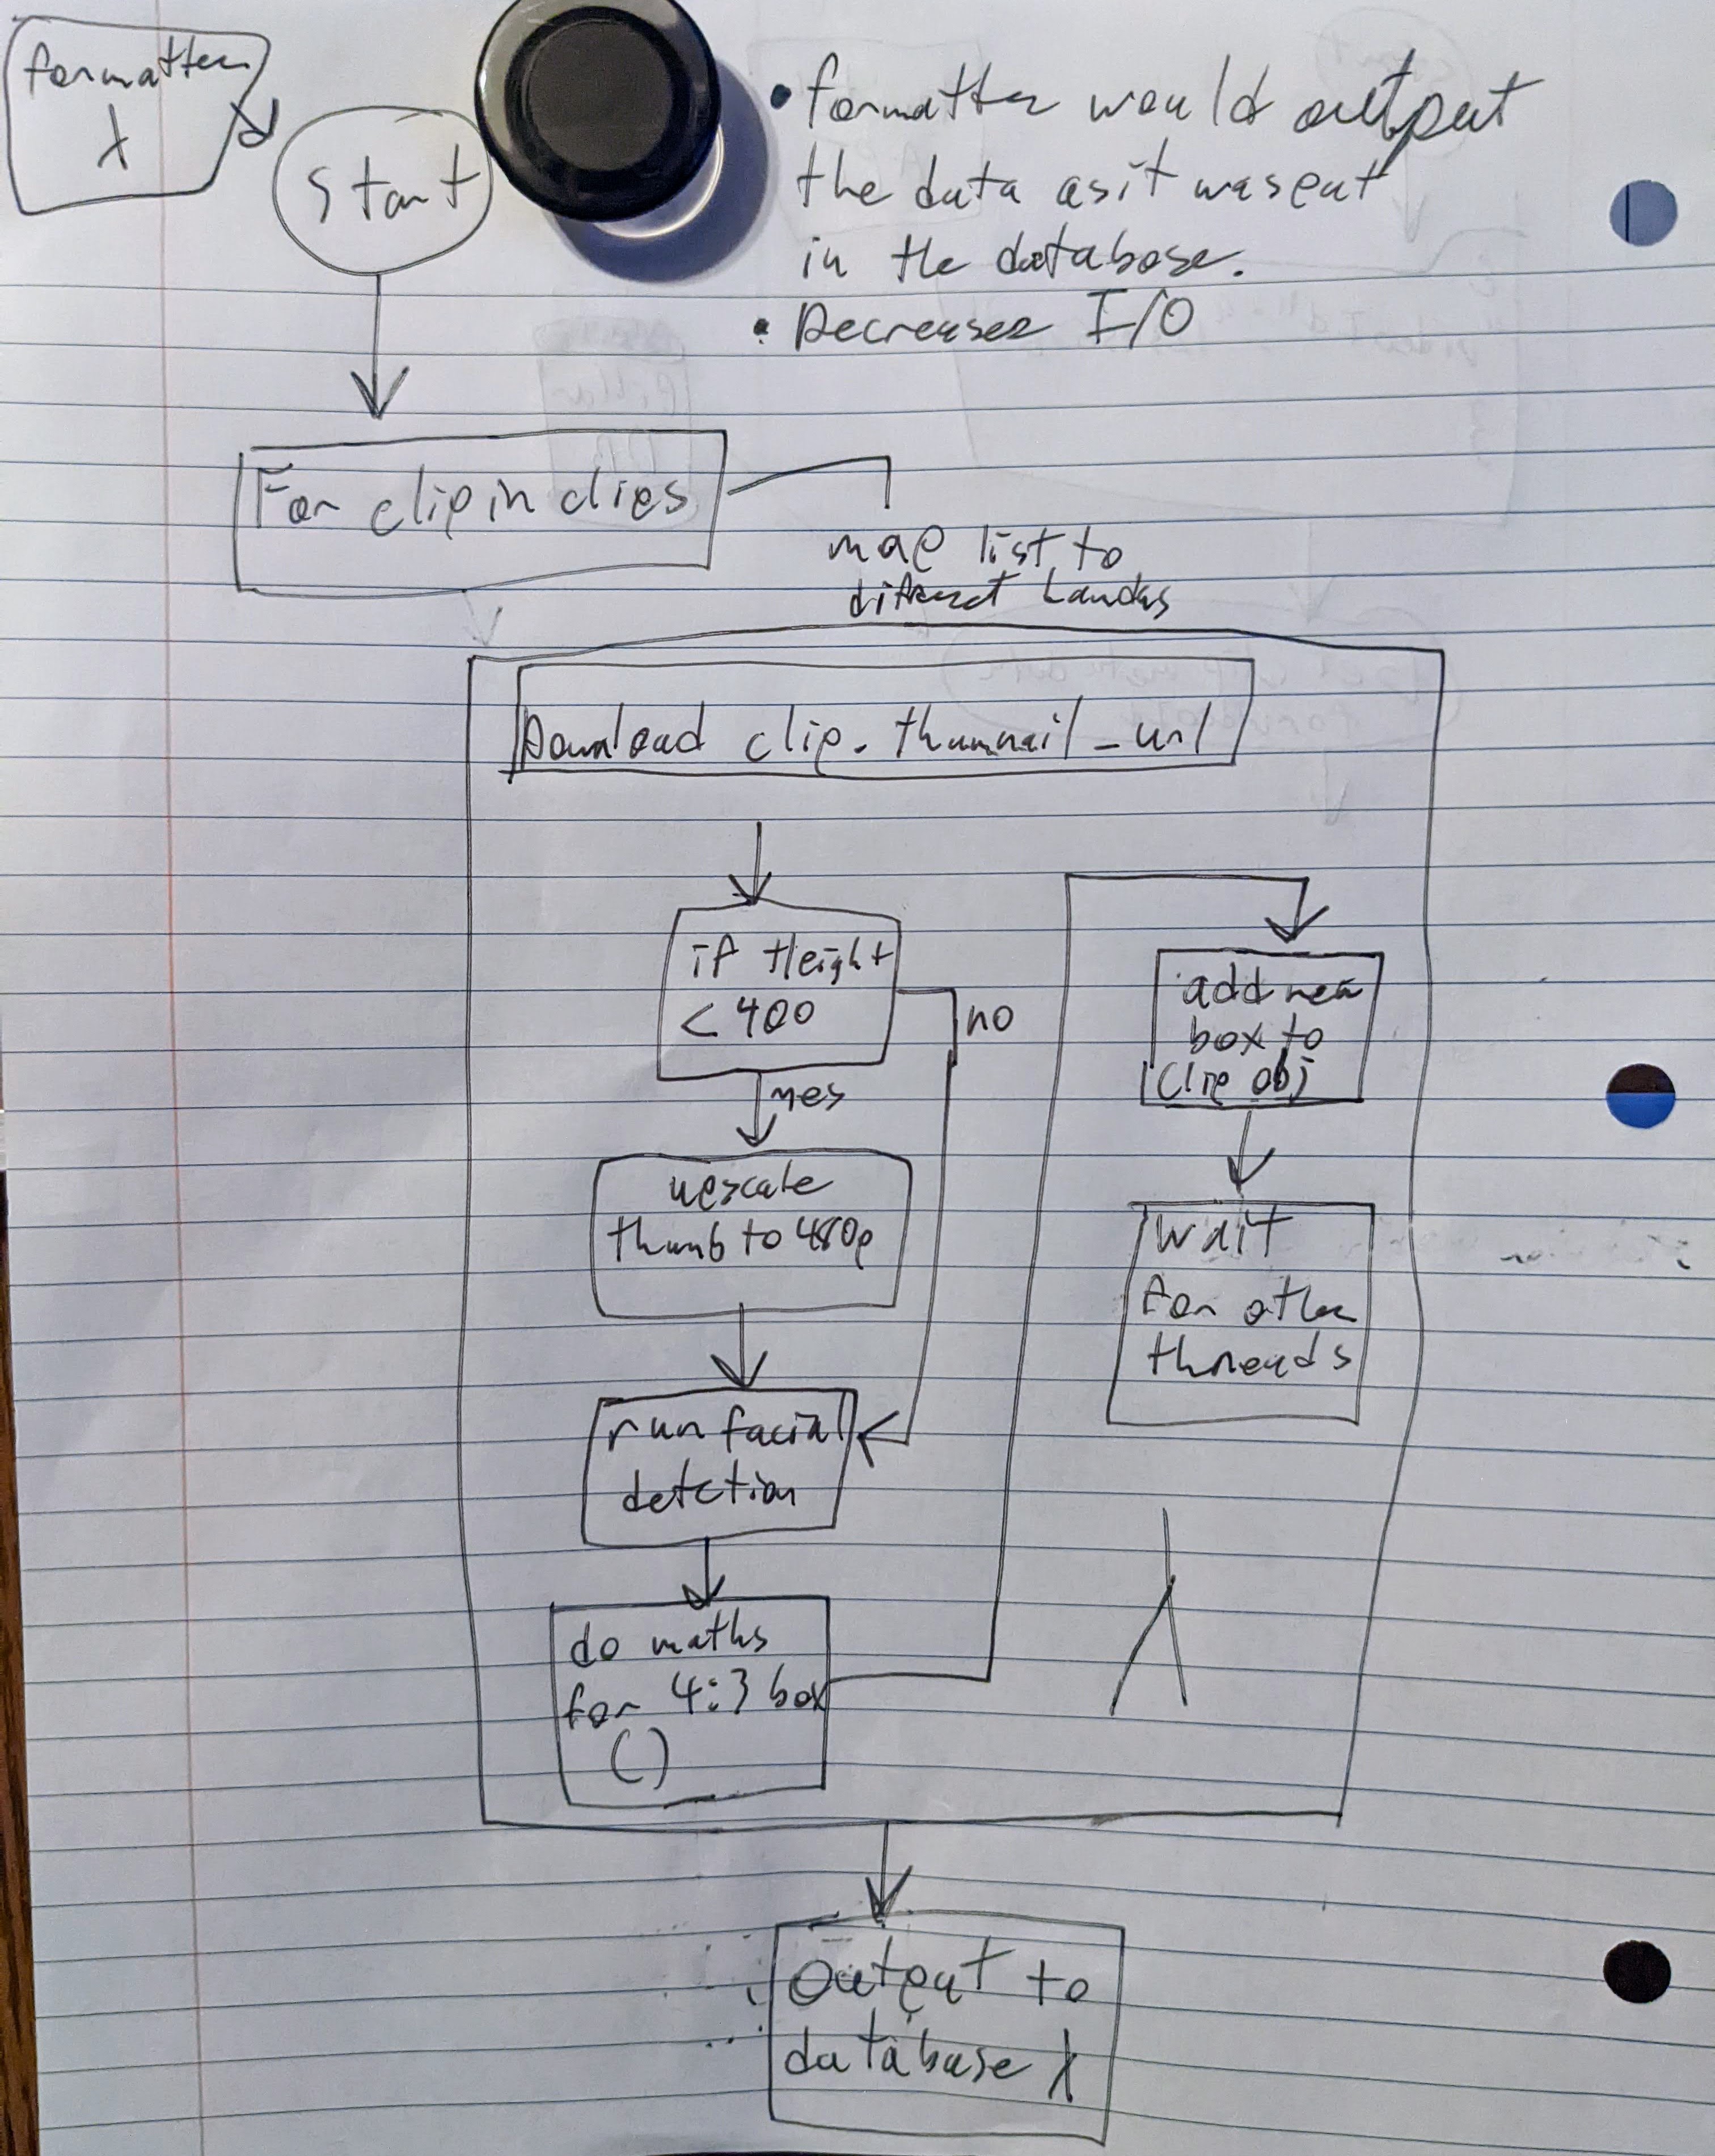 formatter
λ
start
• formatter would output
the data as it was put
in the database.
• Decreases I/O
For clip in clips
map list to
different Lamdas
Download clip. thumnail_url
if Height
< 400
no
yes
upscale
thumb to 480p
run facial
detction
do maths
for 4:3 box
()
add new
box to
clip obj
wait
for other
threads
λ
Output to
database λ